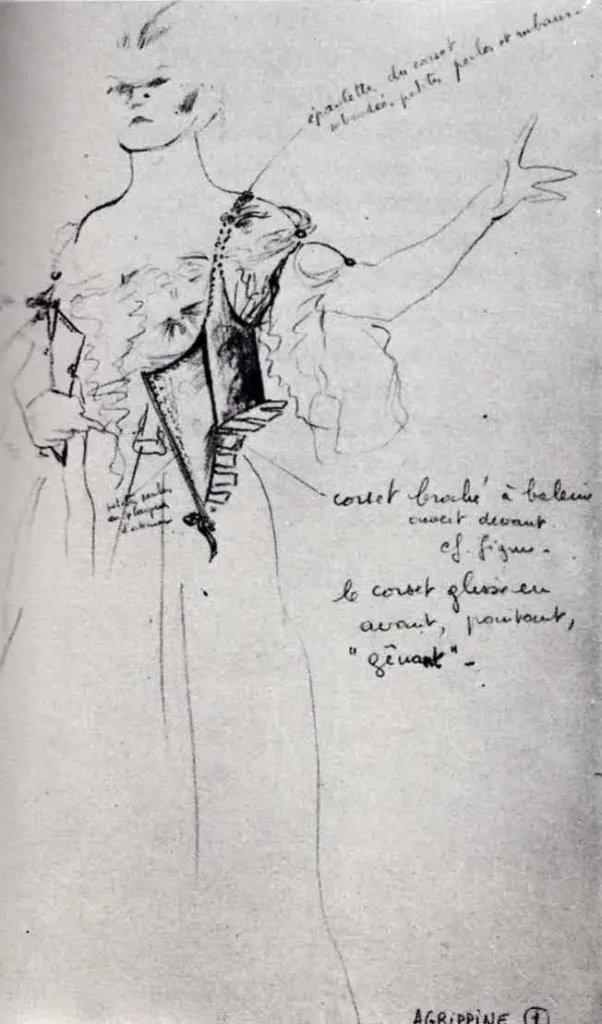 épaulette du corset
rebrodée, petites perles et rubans.
corset broché à baleine
ouvert devant
cf. figure.
le corset glisse en
avant, pourtant,
"gênant" -
petites
d'
AGRIPPINE 1